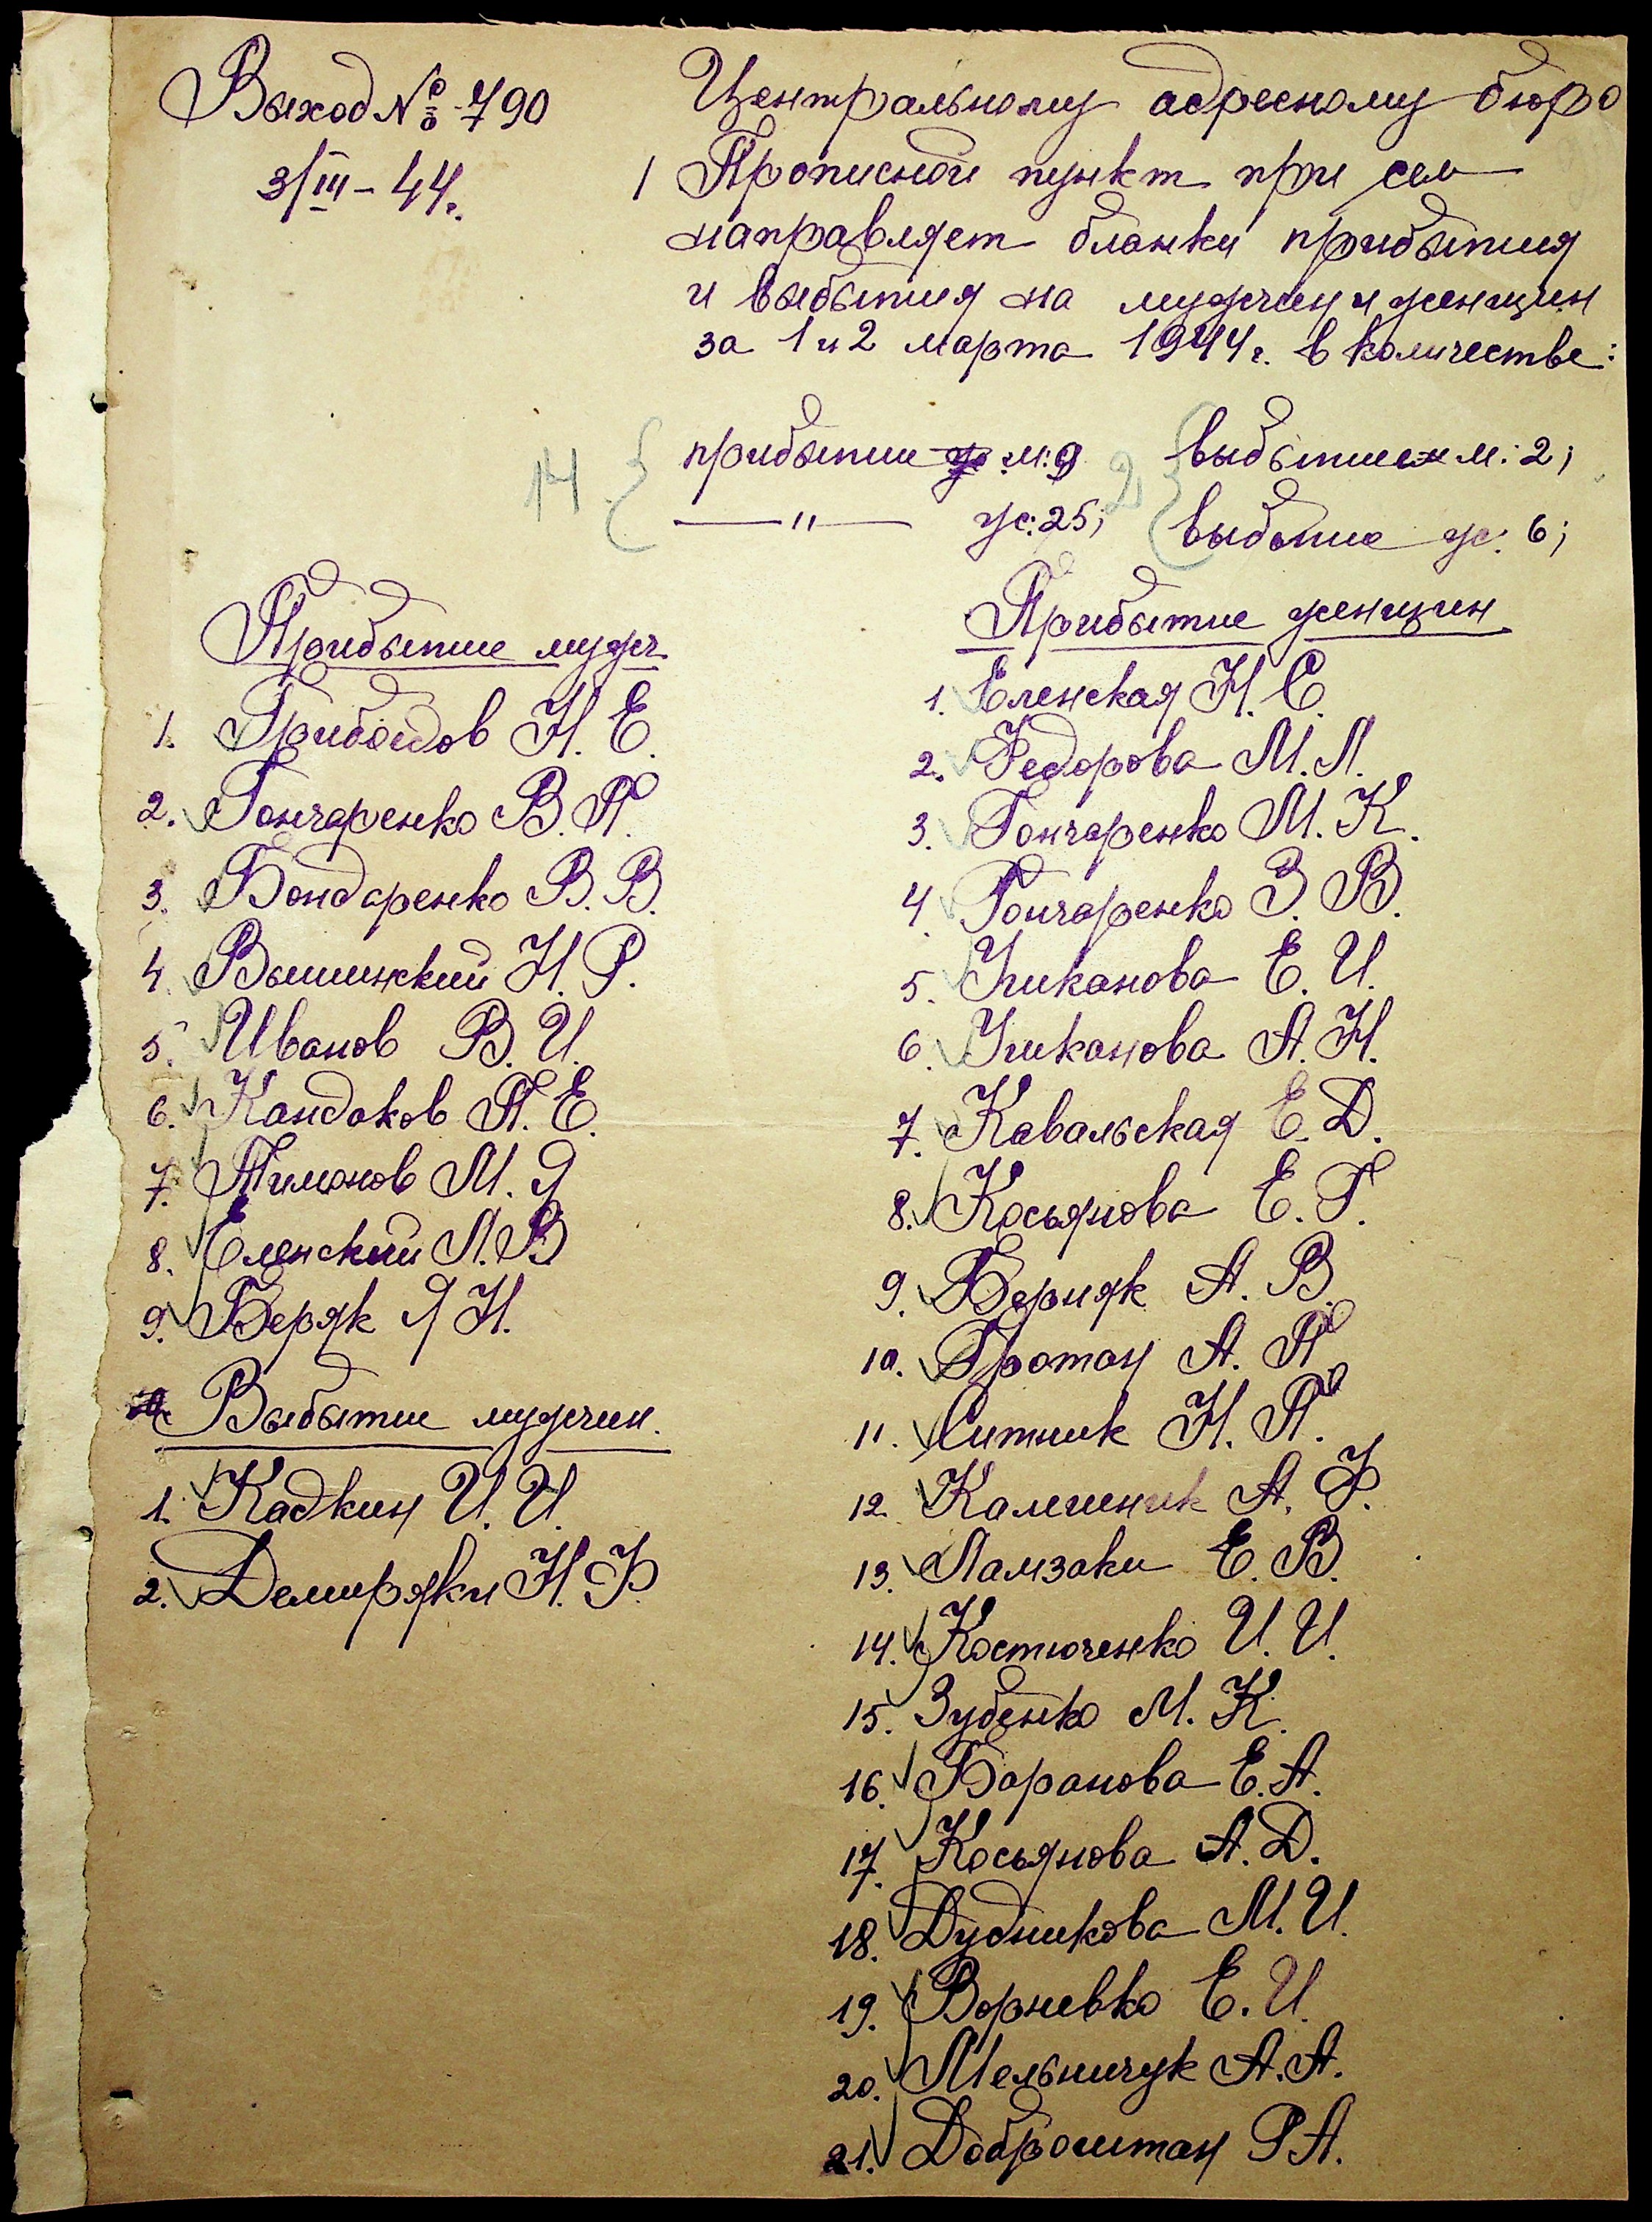 Выход № 790
3/III - 44 г.
Центральному адресному бюро
Прописной пункт при сем
направляет бланки прибытия
и выбытия на мужчин и женщин
за 1 и 2 марта 1944 г. в количестве:
прибытие м: 9
—— " —— ж: 25;
выбытие м: 2;
выбытие ж: 6;
14
Прибытие мужч.
1. Грибоедов Н. Е.
2. Гончаренко В. П.
3. Бондаренко В. В.
4 Вышинский Н. Р.
5. Иванов В. И.
6. Кандаков П. Е.
7. Тимонов М. Я
8. Еленский Л. В
9. Беряк Я Н.
Выбытие мужчин.
1. Кадкин И. И.
2. Демиряки Н. Ф.
Прибытие женщин
1. Еленская Н. С.
2. Федорова М. Л.
3. Гончаренко М. К.
4. Гончаренко З. В.
5. Чиканова Е. И.
6. Чиканова А. Н.
7. Кавальская Е. Д.
8. Косьянова Е. Г.
9. Берняк А. В.
10. Гротан А. П.
11. Ситник Н. П.
12. А. Ф.
13. Ламзаки Е. В.
14. Костюченко И. И.
15. Зубенко М. К.
16. Баранова Е. А.
17. Косьянова А. Д.
18. Дудникова М. И.
19. Ворневко Е. И.
20. Мельничук А. А.
21. Доброштан Р А.